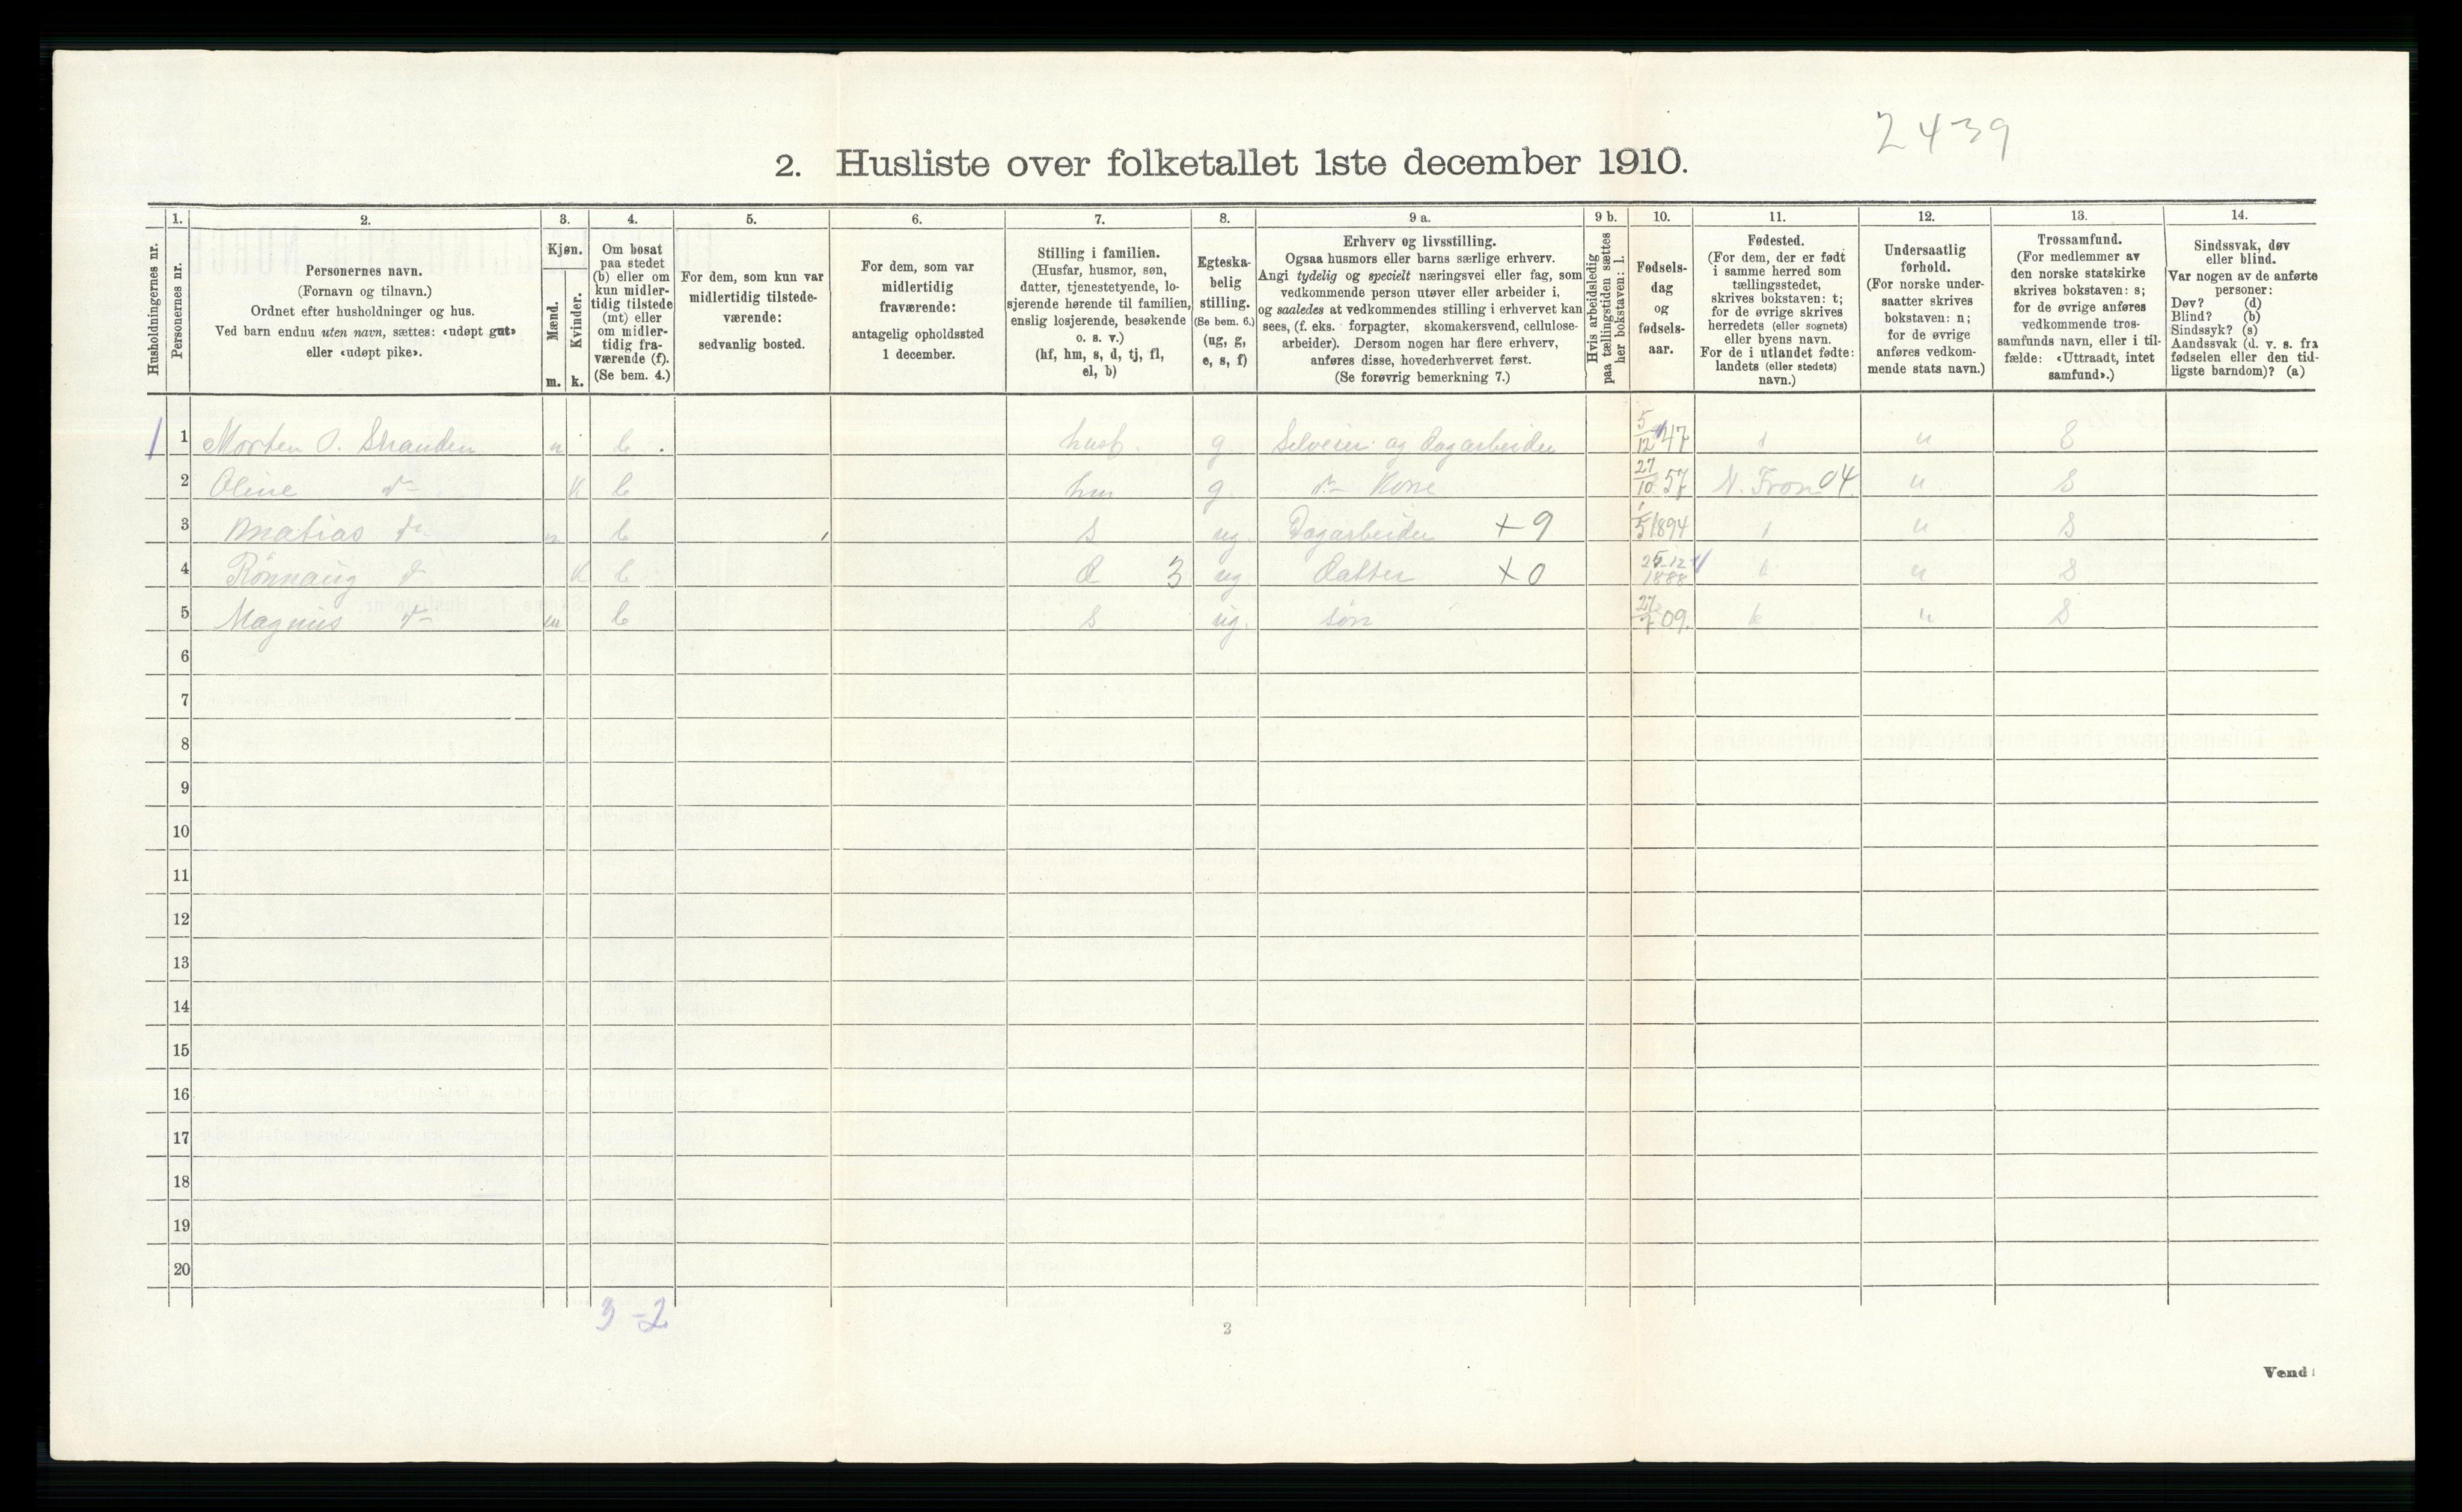 2439
2. Husliste over folketallet 1ste december 1910.
1. 2. 3. 4. 5. 6. 7. 8. 9 a. 9 b. 10. 11. 12. 13. 14.
Husholdningernes nr.
Personernes nr.
Personernes navn.
(Fornavn og tilnavn.)
Ordnet efter husholdninger og hus.
Ved barn endnu uten navn, sættes: «udøpt gut»
eller «udøpt pike».
Kjøn.
Mænd.
Kvinder.
m. k.
Om bosat
paa stedet
(b) eller om
kun midler-
tidig tilstede
(mt) eller
om midler-
tidig fra-
værende (f).
(Se bem. 4.)
For dem, som kun var
midlertidig tilstede-
værende:
sedvanlig bosted.
For dem, som var
midlertidig
fraværende:
antagelig opholdssted
1 december.
Stilling i familien.
(Husfar, husmor, søn,
datter, tjenestetyende, lo-
sjerende hørende til familien,
enslig losjerende, besøkende
o. s. v.)
(hf, hm, s, d, tj, fl,
el, b)
Egteska-
belig
stilling.
(Se bem. 6.)
(ug, g,
e, s, f)
Erhverv og livsstilling.
Ogsaa husmors eller barns særlige erhverv.
Angi tydelig og specielt næringsvei eller fag, som
vedkommende person utøver eller arbeider i,
og saaledes at vedkommendes stilling i erhvervet kan
sees, (f. eks. forpagter, skomakersvend, cellulose-
arbeider). Dersom nogen har flere erhverv,
anføres disse, hovederhvervet først.
(Se forøvrig bemerkning 7.)
Hvis arbeidsledig
paa tællingstiden sættes
her bokstaven: l.
Fødsels-
dag
og
fødsels-
aar.
Fødested.
(For dem, der er født
i samme herred som
tællingsstedet,
skrives bokstaven: t;
for de øvrige skrives
herredets (eller sognets)
eller byens navn.
For de i utlandet fødte:
landets (eller stedets)
navn.)
Undersaatlig
forhold.
(For norske under-
saatter skrives
bokstaven: n;
for de øvrige
anføres vedkom-
mende stats navn.)
Trossamfund.
(For medlemmer av
den norske statskirke
skrives bokstaven: s;
for de øvrige anføres
vedkommende tros-
samfunds navn, eller i til-
fælde: «Uttraadt, intet
samfund».)
Sindssvak, døv
eller blind.
Var nogen av de anførte
personer:
Døv? (d)
Blind? (b)
Sindssyk? (s)
Aandssvak (d. v. s. fra
fødselen eller den tid-
ligste barndom)? (a)
1 1 Morten O. Stranden m b husf. g Selveier og dagarbeider 5/12 47 t n S
2 Oline do k b hm g do Kone 27/10 57 N. Fron 04 n S
3 Matias do m b s ug. Dagarbeider +9 1894 t n S
4 Rønnaug do k b d 3 ug Datter +0 25-12 1888 t n S
5 Magnus do m b s ug. søn 27/7 09. t n S
6
7
8
9
10
11
12
13
14
15
16
17
18
19
20
3-2
2
Vend!